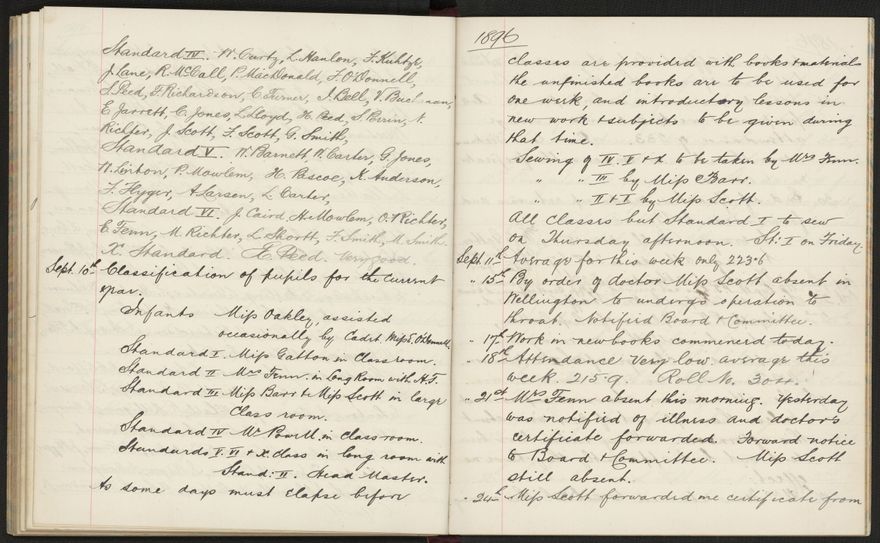 Standard IV. W. Curtz, L. Hanlon, F. Kuhtze,
J. Lane, R. McCall, P. MacDonald, F. O'Donnell,
S. Peed, F. Richardson, C. Turner, I. Bell, V. Buchanan,
E. Jarrett, C. Jones, L. Lloyd, H. Peed, S. Perrin, A.
Richter, J. Scott, F. Scott, G. Smith,
Standard V. W. Barnett, W. Carter, G. Jones,
W. Linton, P. Mowlem, H. Pascoe, K. Anderson,
F. Flyger, A. Larsen, L. Carter,
Standard VI. J. Caird, H. Mowlem, O. Richter,
E. Fenn, M. Richter, L. Shortt, F. Smith, M. Smith.
X. Standard. E. Peed. Very good.
Sept. 10th Classification of pupils for the current
year.
Infants Miss Oakley, assisted
occasionally by Cadet Miss O'Donnell.
Standard I. Miss Gatton in Class room.
Standard II Mrs Fenn. in Long Room with H.T.
Standard III Miss Barr & Miss Scott in large
Class room.
Standard IV Mr Powell. in Class room.
Standards V. VI & X. Class in long room with
Stand: II. Head Master.
As some days must elapse before
1896
classes are provided with books & materials
the unfinished books are to be used for
one week, and introductory lessons in
new work & subjects to be given during
that time.
Sewing of IV. V & X to be taken by Mrs Fenn.
" " III by Miss Barr.
" " II & I by Miss Scott.
All classes but Standard I to sew
on Thursday afternoon. St: I on Friday.
Sept. 11th Average for this week only 223.6
" 15th By order of doctor Miss Scott absent in
Wellington to undergo operation to
throat. Notified Board & Committee.
" 17th Work in new books commenced today.
" 18th Attendance very low. average this
week. 215.9. Roll No.
" 21st Mrs Fenn absent this morning. Yesterday
was notified of illness and doctor's
certificate forwarded. Forward notice
to Board & Committee. Miss Scott
still absent.
" 24th Miss Scott forwarded me certificate from